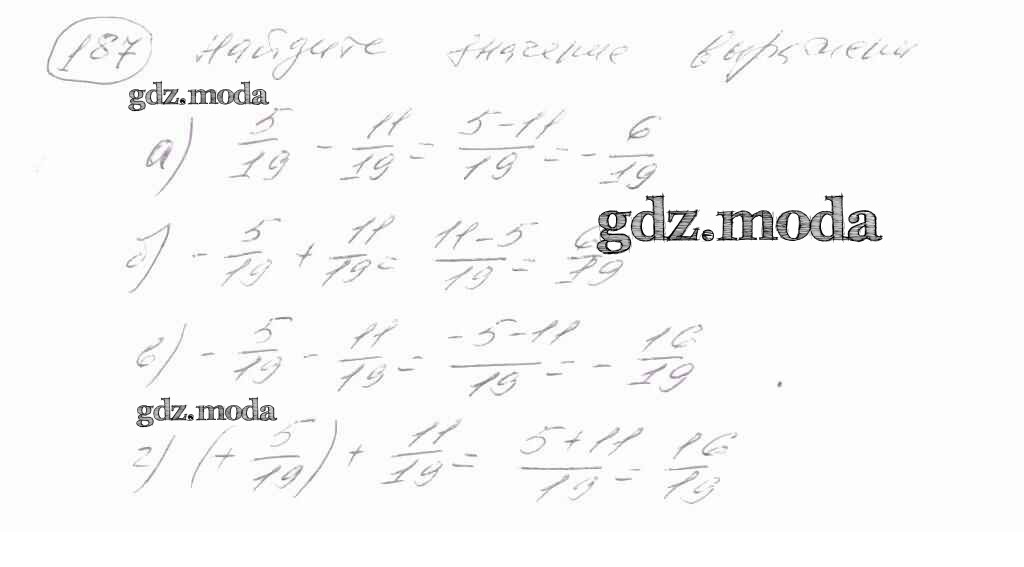 187 Найдите значение выражени
gdz.moda
а) 5/19 - 11/19 = 5-11/19 = - 6/19
gdz.moda
б) - 5/19 + 11/19 = 11-5/19 = 6/19
в) - 5/19 - 11/19 = -5-11/19 = - 16/19
gdz.moda
г) (+ 5/19) + 11/19 = 5+11/19 = 16/19